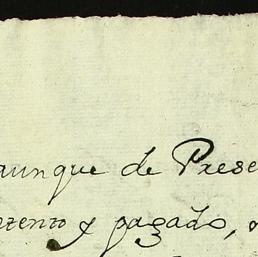 aunque de Prese
ntento y pagado,